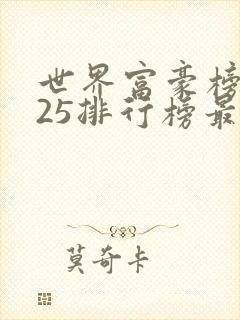 世界富豪榜
25排行榜最
莫奇卡